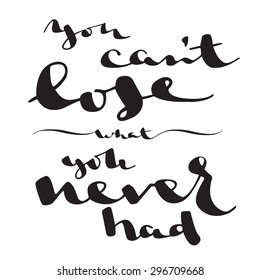 you
can't
lose
what
you
never
had
shutterstock.com · 296709668